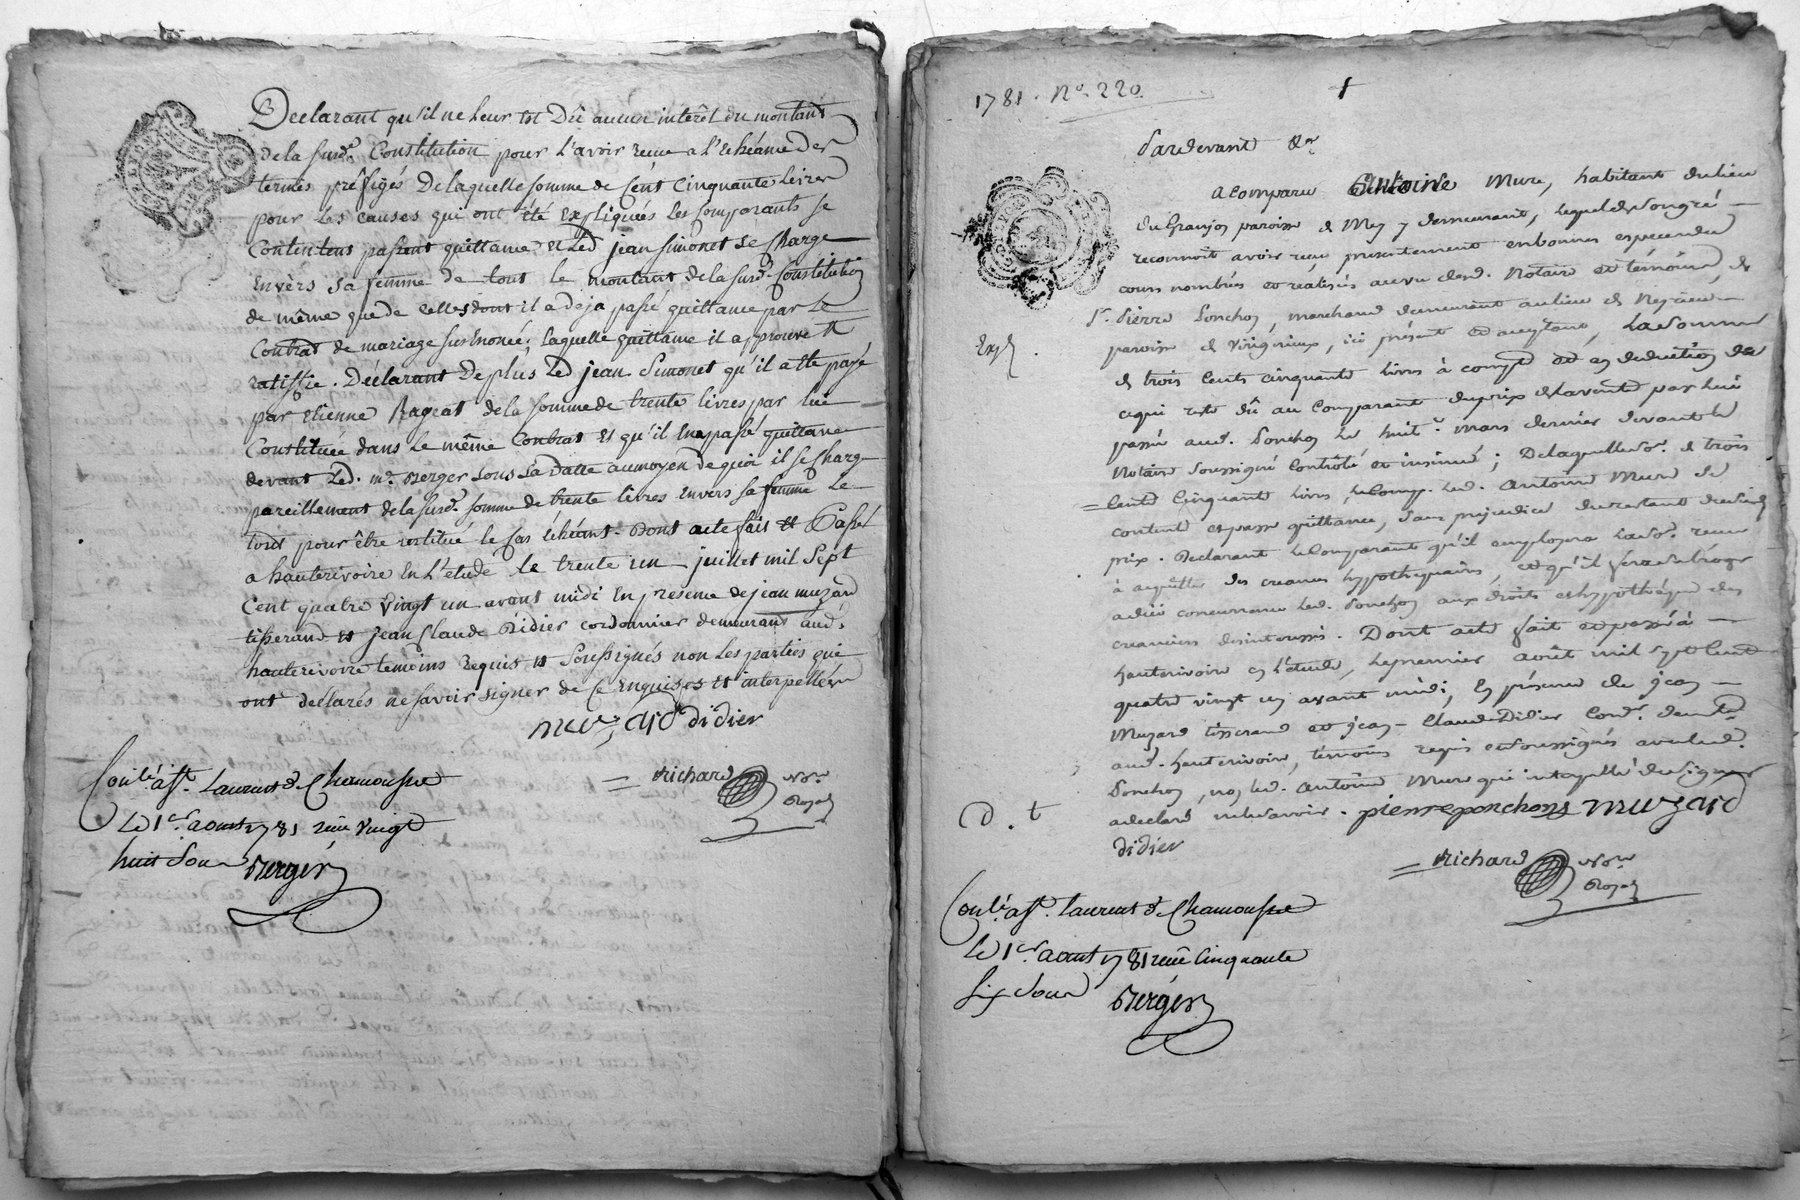 Declarant qu'il ne leur est Dû aucun intérêt du montant
de la susd.e Constitution pour l'avoir reçue a l'echéance des
termes préfigés De laquelle somme de Cent Cinquante livres
pour les causes qui ont été expliquées les comparants se
Contentens passent quittance et Led jean Simonet se Charge
Envèrs sa femme de tout le montant de la susd.e Constitution
de même que de celles dont il a deja passé quittance par le
Contrat de mariage susénoncé; laquelle quittance il approuve et
ratiffie. Déclarant De plus Led jean Simonet qu'il a été payé
par Etienne Rageat de la somme de trente livres par lui
Constituée dans le même Contrat et qu'il En a passé quittance
devant Led. m.e Berger sous sa Datte au moyen de quoi il se Charge
pareillement de la susd.e somme de trente livres envers sa femme Le
tout pour être restitué le Cas échéant. Dont acte fait et Passé
a hauterivoire En L'etude le trente un juillet mil Sept
Cent quatre Vingt un avant midi En présence de jean muzard
tisserand et jean Claude Didier cordonnier demeurant aud.
hauterivoire temoins Requis et Soussignés non Les parties qui
ont déclarés ne savoir signer de Ce Enquises et interpellées
muzard didier
Richard No.re
Royal
Con.lé à S.t Laurent d Chamousset
Le 1.er aoust 1781 reçu Vingt
huit Sous Berger
1781. N.o 220.
1
Pardevant &.a
a Comparu Antoine Mure, habitant du lieu
du Granjon paroisse de Mey y demeurant, lequel de son gré
reconnoit avoir reçu presentement en bonnes especes du
cours nombrés et réalisés au vu dud. Notaire et témoins, de
S.r Pierre Ponchon, marchand demeurant au lieu de
paroisse de Virigneux, ici présent et aceptant, La Somme
Exp.
de trois Cents cinquante livres à compte et en deduction de
ce qui reste dû au Comparant du prix de la vente par lui
passée aud. Ponchon le huit Mars dernier devant le
Notaire Soussigné Contrôlé et insinué; De laquelle So.e de trois
Cents Cinquante livres, le Comp. led. Antoine Mure se
contente et passe quittance, Sans prejudice du restant dud.
prix. Declarant le Comparant qu'il employera lad. So.e reçue
à aquitter des creances hypothequaires, et qu'il fera subroger
a dûe concurrence led. Ponchon aux droits et hypothéques des
creanciers desinteressés. Dont acte fait et passé à
hauterivoire en l'étude, le premier août mil Sept Cent
quatre vingt un avant midi; En présence de jean
Muzard tisserand et jean-Claude Didier Cord.r dem.ts
aud. hauterivoire, témoins requis et Soussignés avec led.
Ponchon, non led. Antoine Mure qui interpellé de Signer
a declaré ne le savoir. pierre ponchons muzard
D. t
didier
Richard No.re
Royal
Con.lé à S.t Laurent d Chamousset
Le 1.er aoust 1781 reçu Cinquante
Six Sous Berger